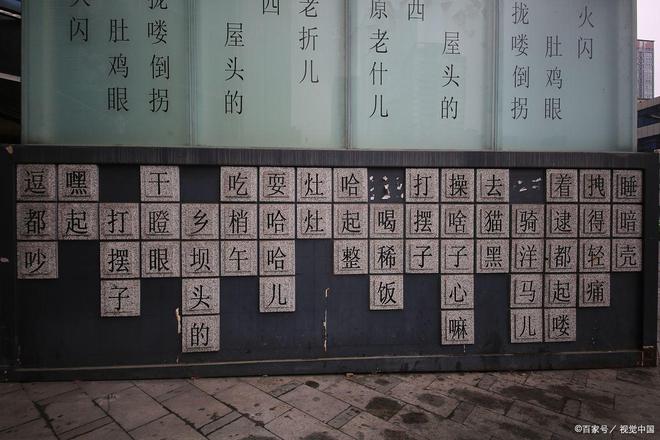 火闪
肚鸡眼
拢喽倒拐
屋头的
四
老折儿
原老什儿
西
屋头的
拢喽倒拐
肚鸡眼
火闪
逗都吵
嘿起
打摆子
干瞪眼
乡坝头的
吃梢午
耍哈哈儿
灶灶
哈起整
喝稀饭
打摆子
操啥子心嘛
去猫黑
骑洋马儿
着逮都起喽
拽得轻痛
睡暗壳
©百家号／视觉中国